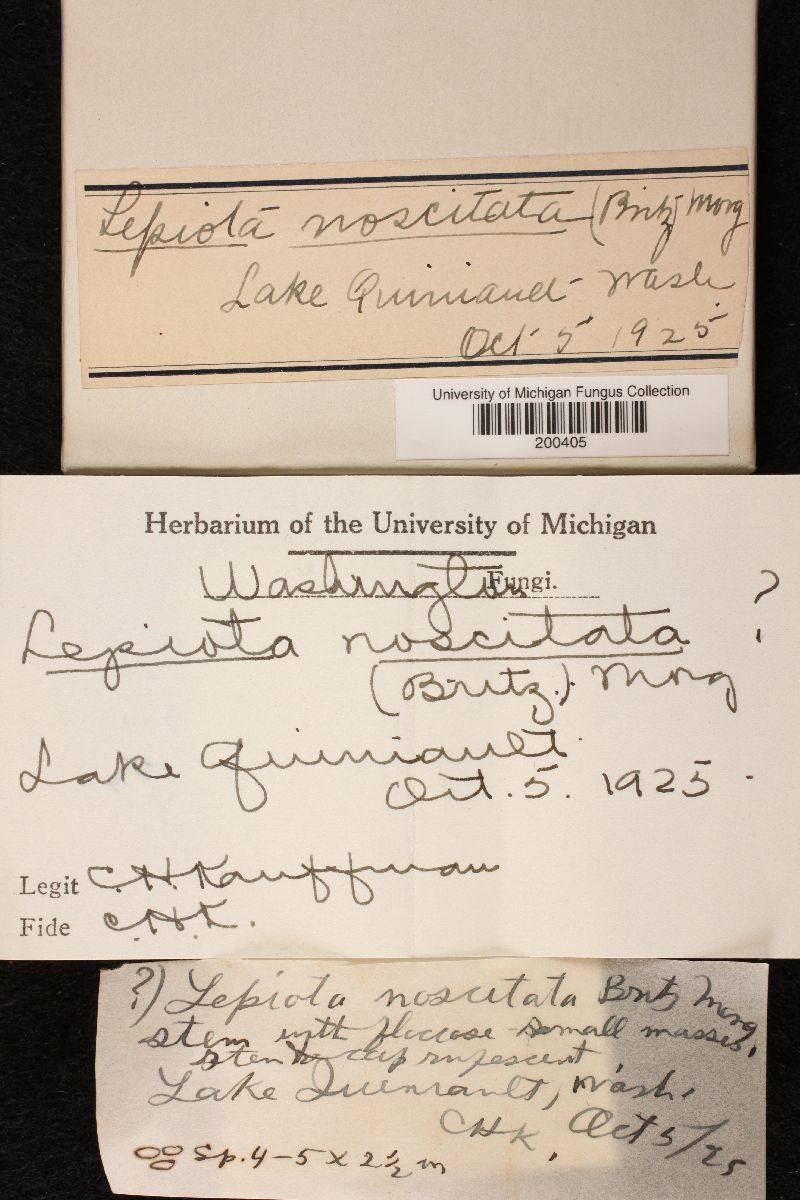 Lepiota noscitata (Britz) Morg
Lake Quiniault - Wash.
Oct 5 1925
University of Michigan Fungus Collection
200405
Herbarium of the University of Michigan
Washington Fungi.
Lepiota noscitata ?
(Britz.) Morg
Lake Quiniault
Oct. 5. 1925.
Legit C.H. Kauffman
Fide C.H.K.
?) Lepiota noscitata Britz Morg
stem with floccose small masses.
stem & cap rufescent.
Lake Quiniault, Wash.
CHK. Oct 5/25
Sp. 4-5 x 2½ m